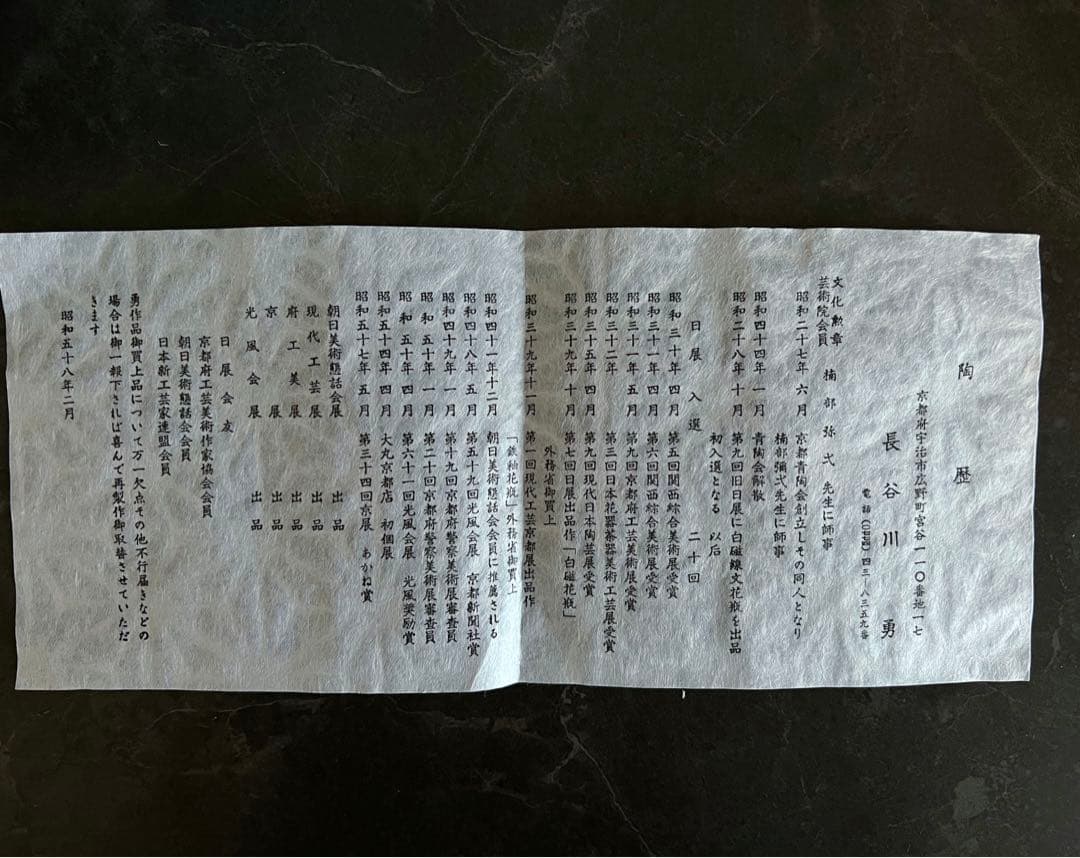 陶歴
京都府宇治市広野町宮谷一一〇番地一七
長谷川勇
電話(〇七七四)四三-八三五九番
文化勲章
芸術院会員 楠部弥弌 先生に師事
昭和二十七年 六月 京都青陶会創立しその同人となり
楠部彌弌先生に師事
昭和四十四年 一月 青陶会解散
昭和二十八年 十月 第九回旧日展に白磁線文花瓶を出品
初入選となる 以后
日展入選 二十回
昭和三十年 四月 第五回関西綜合美術展受賞
昭和三十一年 四月 第六回関西綜合美術展受賞
昭和三十一年 五月 第九回京都府工芸美術展受賞
昭和三十二年 第三回日本花器茶器美術工芸展受賞
昭和三十五年 四月 第九回現代日本陶芸展受賞
昭和三十九年 十月 第七回日展出品作「白磁花瓶」
外務省御買上
昭和三十九年十一月 第一回現代工芸京都展出品作
「鉄釉花瓶」外務省御買上
昭和四十一年十二月 朝日美術懇話会会員に推薦される
昭和四十八年 五月 第五十九回光風会展 京都新聞社賞
昭和四十九年 一月 第十九回京都府警察美術展審査員
昭和五十年 一月 第二十回京都府警察美術展審査員
昭和五十年 四月 第六十一回光風会展 光風奨励賞
昭和五十四年 四月 大丸京都店 初個展
昭和五十七年 五月 第三十四回京展 あかね賞
朝日美術懇話会展 出品
現代工芸展 出品
府工美展 出品
京展 出品
光風会展 出品
日展会友
京都府工芸美術作家協会会員
朝日美術懇話会会員
日本新工芸家連盟会員
勇作品御買上品について万一欠点その他不行届きなどの
場合は御一報下されば喜んで再製作御取替させていただ
きます
昭和五十八年二月